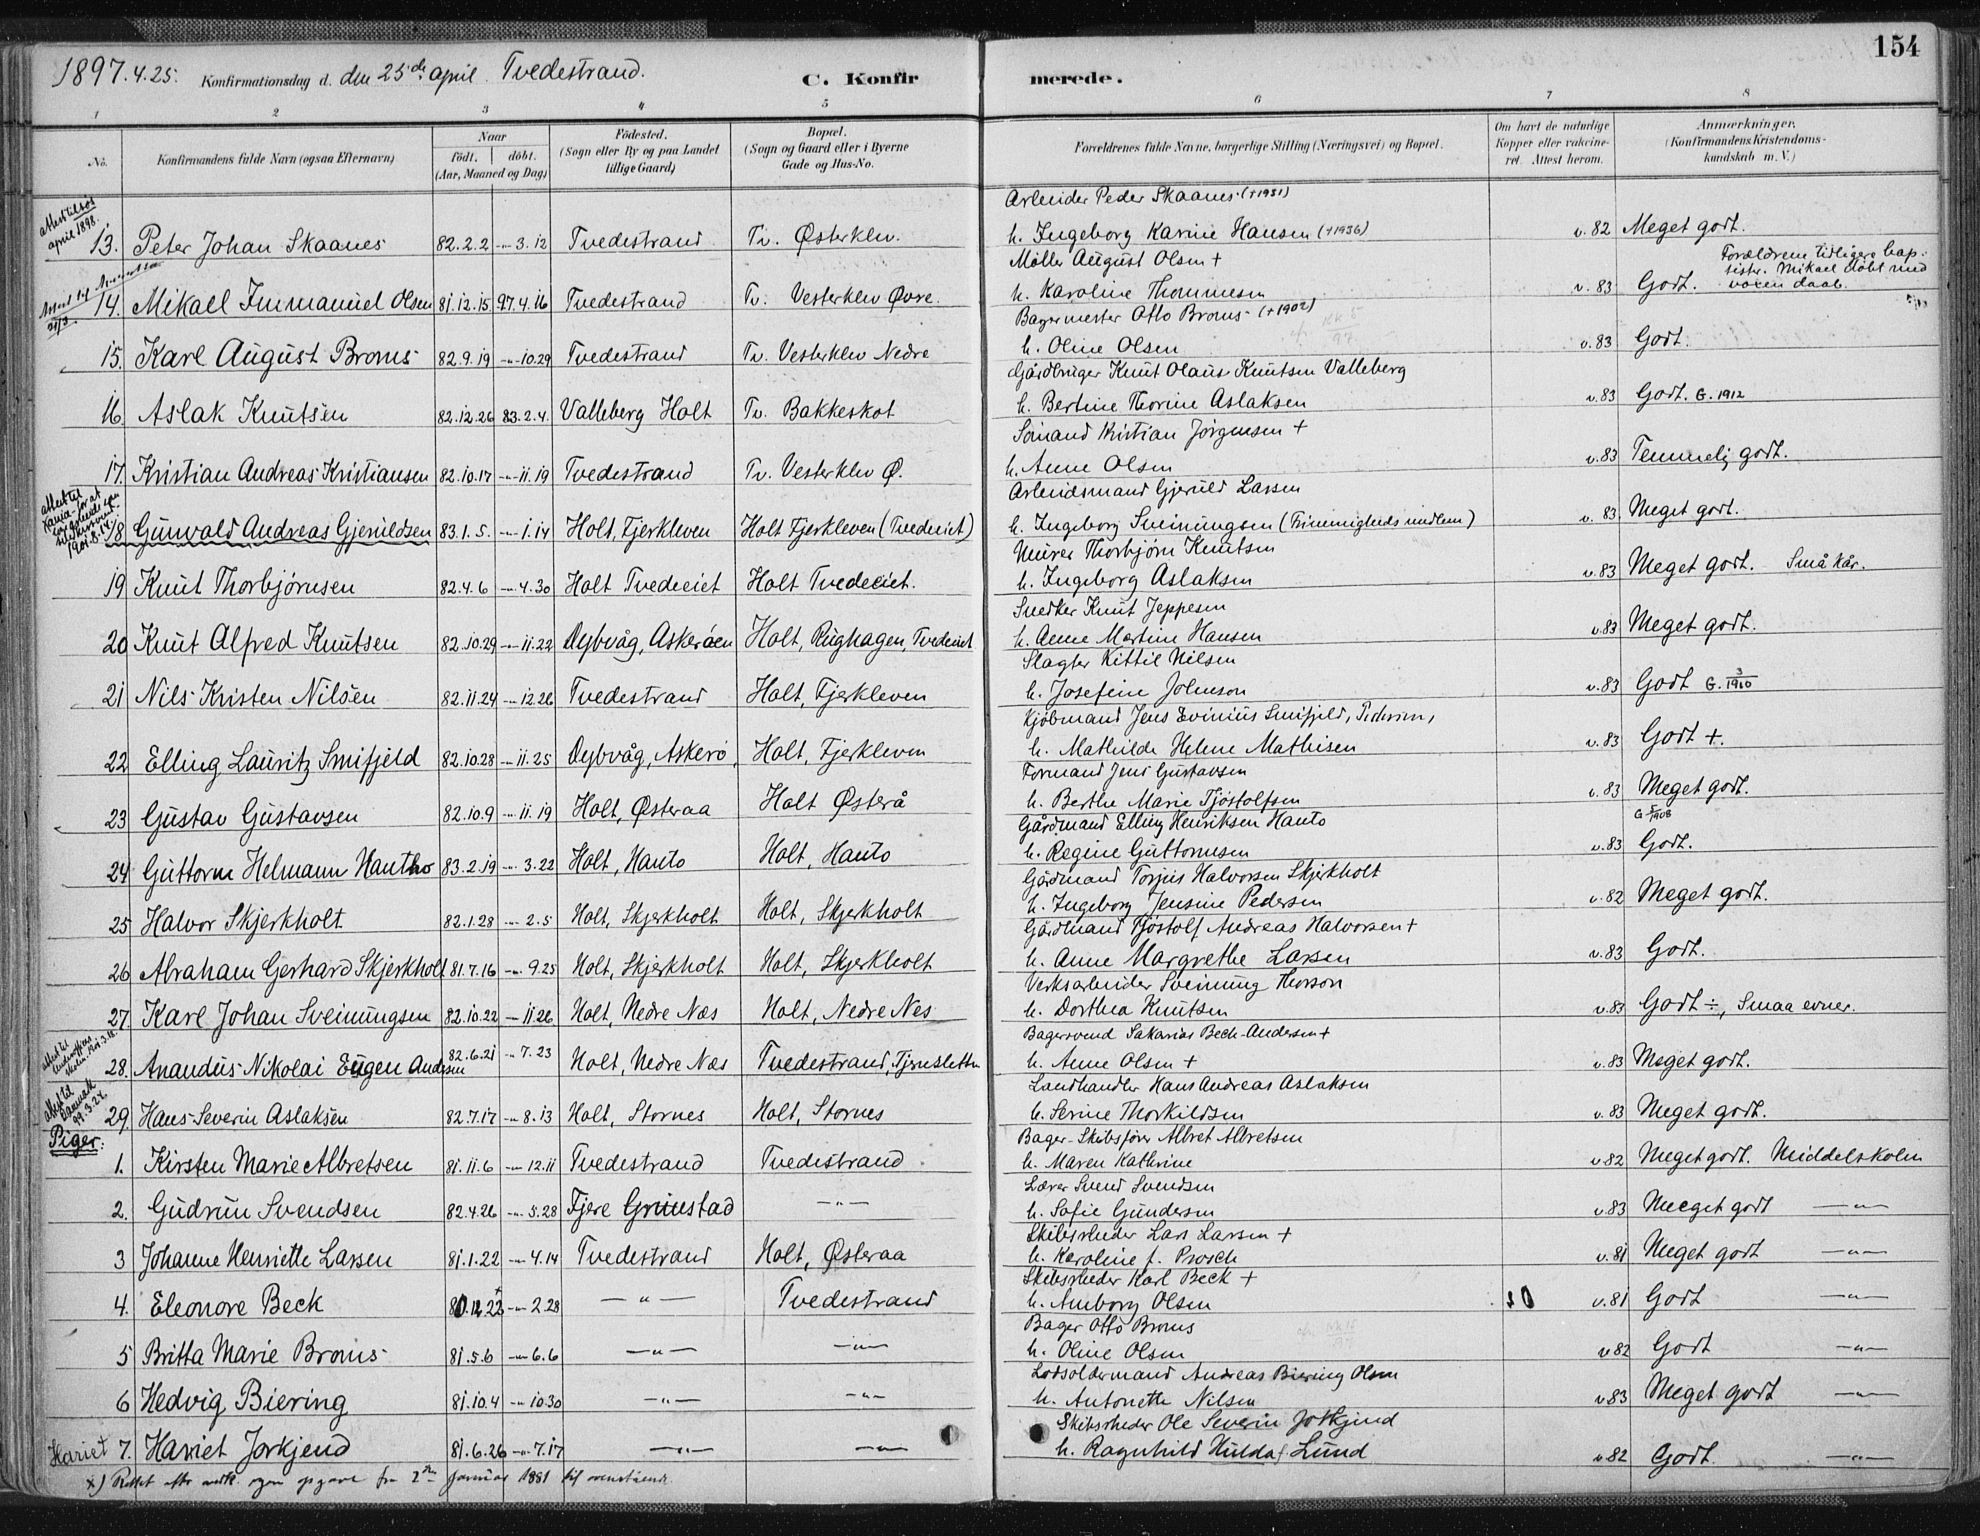 154
1897. 4. 25. Konfirmationsdag d. den 25de april. Tvedestrand. C. Konfirmerede.
1 2 3 4 5 6 7 8
No. Konfirmandens fulde Navn (ogsaa Efternavn) Naar födt. döbt. (Aar, Maaned og Dag) Födested. (Sogn eller By og paa Landet tillige Gaard) Bopæl. (Sogn og Gaard eller i Byerne Gade og Hus-No. Forældrenes fulde Navne, borgerlige Stilling (Næringsvei) og Bopæl. Om havt de naturlige Kopper eller vakcineret. Attest herom. Anmærkninger. (Konfirmandens Kristendomskundskab m. V.)
attest til søs april 1898.
Arbeider Peder Skaanes (+1931)
13. Peter Johan Skaanes 82.2.2 -"- 3.12 Tvedestrand Tv. Østerklev. h. Ingeborg Karine Hansen (+1936) v. 82 Meget godt.
Attest til Amerika
Møller August Olsen + Forældrene tidligere baptister. Mikael døbt med voxen daab.
14. Mikael Immanuel Olsen 81.12.15 97.4.16 Tvedestrand Tv. Vesterklev Øvre. h. Karoline Thommesen v. 83 Godt.
Bagermester Otto Broms (+1902)
15. Karl August Broms 82.9.19 -"- 10.29 Tvedestrand Tv. Vesterklev Nedre h. Oline Olsen v. 83 Godt.
Gårdbruger Knut Olaus Knutsen Valleberg
16. Aslak Knutsen 82.12.26 83.2.4. Valleberg Holt Tv. Bakkeskot h. Bertine Thorine Aslaksen v. 83 Godt. G. 1912
Sømand Kristian Jørgensen +
17. Kristian Andreas Kristiansen 82.10.17 -"- 11.19 Tvedestrand Tv. Vesterklev Ø. h. Anne Olsen v. 83 Temmelig godt.
Arbeidsmand Gjeruld Larsen
18 Gunvald Andreas Gjeruldsen 83.1.5. -"- 1.14 Holt, Fjerkleven Holt Fjerkleven (Tvedeeiet) h. Ingeborg Sveinungsen (Frimenigheds medlem) v. 83. Meget godt.
Murer Thorbjørn Knutsen
19 Knut Thorbjørnsen 82.4.6 -"- 4.30 Holt Tvedeeiet Holt Tvedeeiet. h. Ingeborg Aslaksen v. 83 Meget godt. Små kår.
Snedker Knut Jeppesen
20 Knut Alfred Knutsen 82.10.29 -"- 11.22 Dybvåg, Askerøen Holt, Rughagen, Tvedeeiet h. Anne Martine Hansen v. 83 Meget godt.
Slagter Kittil Nilsen
21 Nils Kristen Nilsen 82.11.24 -"- 12.26 Tvedestrand Holt, Fjerkleven h. Josefine Johnson v. 83 Godt G. 3/1910
Kjøbmand Jens Evinius Smifjeld, Pedersen,
22 Elling Lauritz Smifjeld 82.10.28 -"- 11.25 Dybvåg, Askerø, Holt, Fjerkleven h. Mathilde Helene Mathisen v. 83 Godt +.
Formand Jens Gustavsen
23 Gustav Gustavsen 82.10.9 -"- 11.19 Holt, Østeraa Holt Østerå h. Berthe Marie Tjøstolfsen v. 83 Meget godt.
Gårdmand Elling Henriksen Hanto G 5/1908
24 Guttorm Helmann Hantho 83.2.19 -"- 3.22 Holt, Hanto Holt, Hanto h. Regine Guttormsen v. 83 Godt.
Gårdmand Torjus Halvorsen Skjerkholt
25 Halvor Skjerkholt 82.1.28 -"- 2.5 Holt, Skjerkholt Holt, Skjerkholt h. Ingeborg Jensine Pedersen v. 82 Meget godt.
Gårdmand Tjøstolf Andreas Halvorsen +
26 Abraham Gerhard Skjerkholt 81.7.16 -"- 9.25 Holt, Skjerkholt Holt, Skjerkholt h. Anne Margrethe Larsen v. 83 Godt.
Verksarbeider Sveinung Thorson
27. Karl Johan Sveinungsen 82.10.22 -"- 11.26 Holt, Nedre Næs Holt, Nedre Nes h. Dorthea Knutsen v. 83 Godt ÷, Smaa evner.
Bagersvend Sakarias Bech-Andersen +
28. Anandus Nikolai Eugen Andersen 82.6.21 -"- 7.23 Holt, Nedre Næs Tvedestrand, Tjernsletten h. Anne Olsen + v. 83 Meget godt.
attest til Danmark 99.3.24.
Landhandler Hans Andreas Aslaksen
29. Hans Severin Aslaksen 82.7.17 -"- 8.13 Holt, Stornes Holt, Stornes h. Serine Thorkildsen v. 83 Meget godt.
Piger:
Bager-Skibsfører Albret Albretsen
1. Kirsten Marie Albretsen 81.11.6 -"- 12.11 Tvedestrand Tvedestrand h. Maren Kathrine v. 82 Meget godt. Middelskolen
Lærer Svend Svendsen
2. Gudrun Svendsen 82.4.26 -"- 5.28 Fjere Grimstad -"- h. Sofie Gundersen v. 83 Meeget godt -"-
Skibsrheder Lars Larsen +
3 Johanne Henriette Larsen 81.1.22 -"- 4.14 Tvedestrand Holt, Østeraa h. Karoline f. Prosch v. 81 Meget godt -"-
Skibsrheder Karl Beck +
4. Eleonore Beck 80.12.22 -"- 2.28 -"- Tvedestrand h. Amborg Olsen v. 81 Godt -"-
Bager Otto Broms
5 Britta Marie Broms 81.5.6 -"- 6.6 -"- -"- h. Oline Olsen v 82 Godt -"-
Lodsoldermand Andreas Biering Olsen
6 Hedvig Biering 81.10.4 -"- 10.30 -"- -"- h. Antonette Nilsen v 83 Meget godt -"-
Skibsrheder Ole Severin Jorkjend
Hariet 7. Hariet Jorkjend 81.6.26 -"- 7.17 -"- -"- h. Ragnhild Hulda f. Lund v 82 Godt. -"-
x) Rettet efter egen opgave fra 2den januar 1881 til ovenstående.